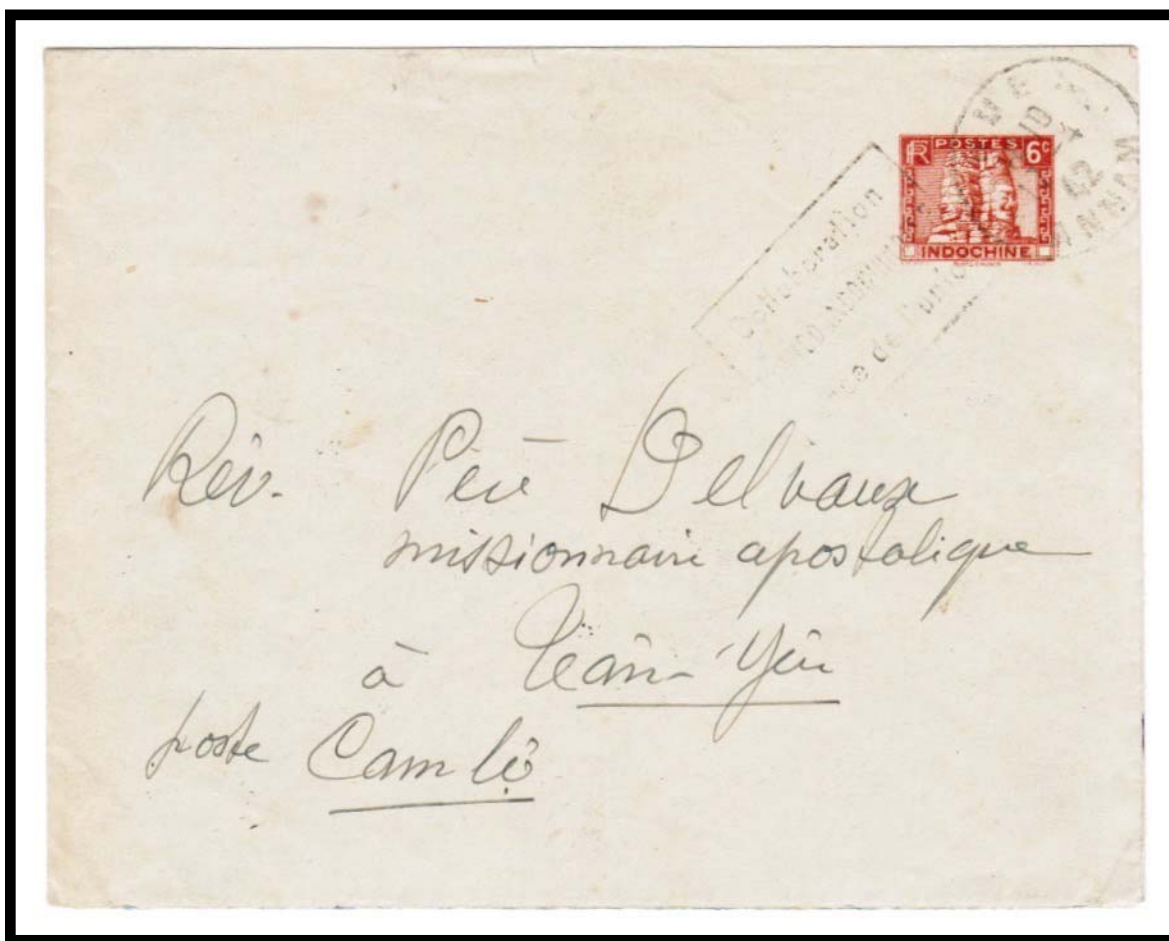 POSTES 6c
INDOCHINE
ANNAM
Collaboration
de l'union
Rév. Père Delvaux
missionnaire apostolique
à
poste Cam lộ